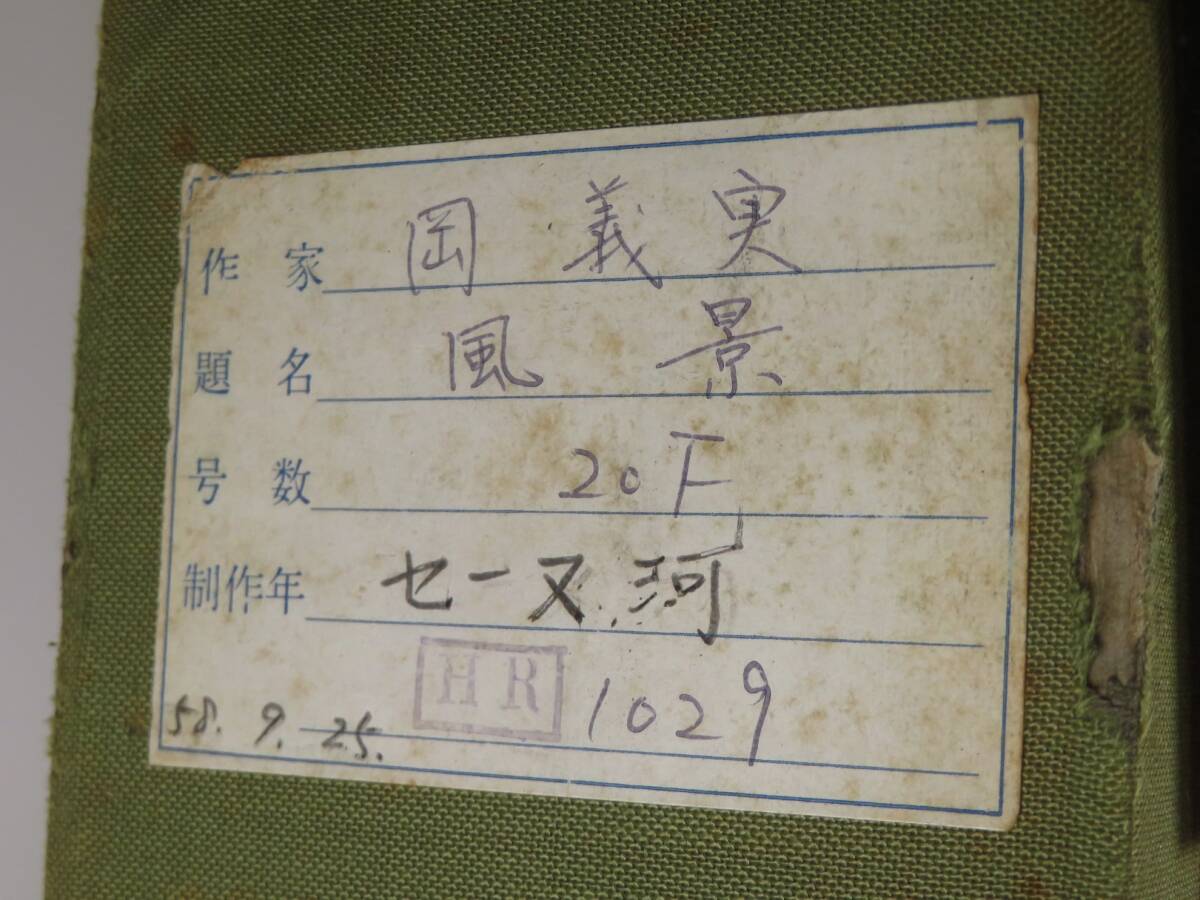 作家 岡義実
題名 風景
号数 20F
制作年 セーヌ河
HR 1029
58. 9. 25.